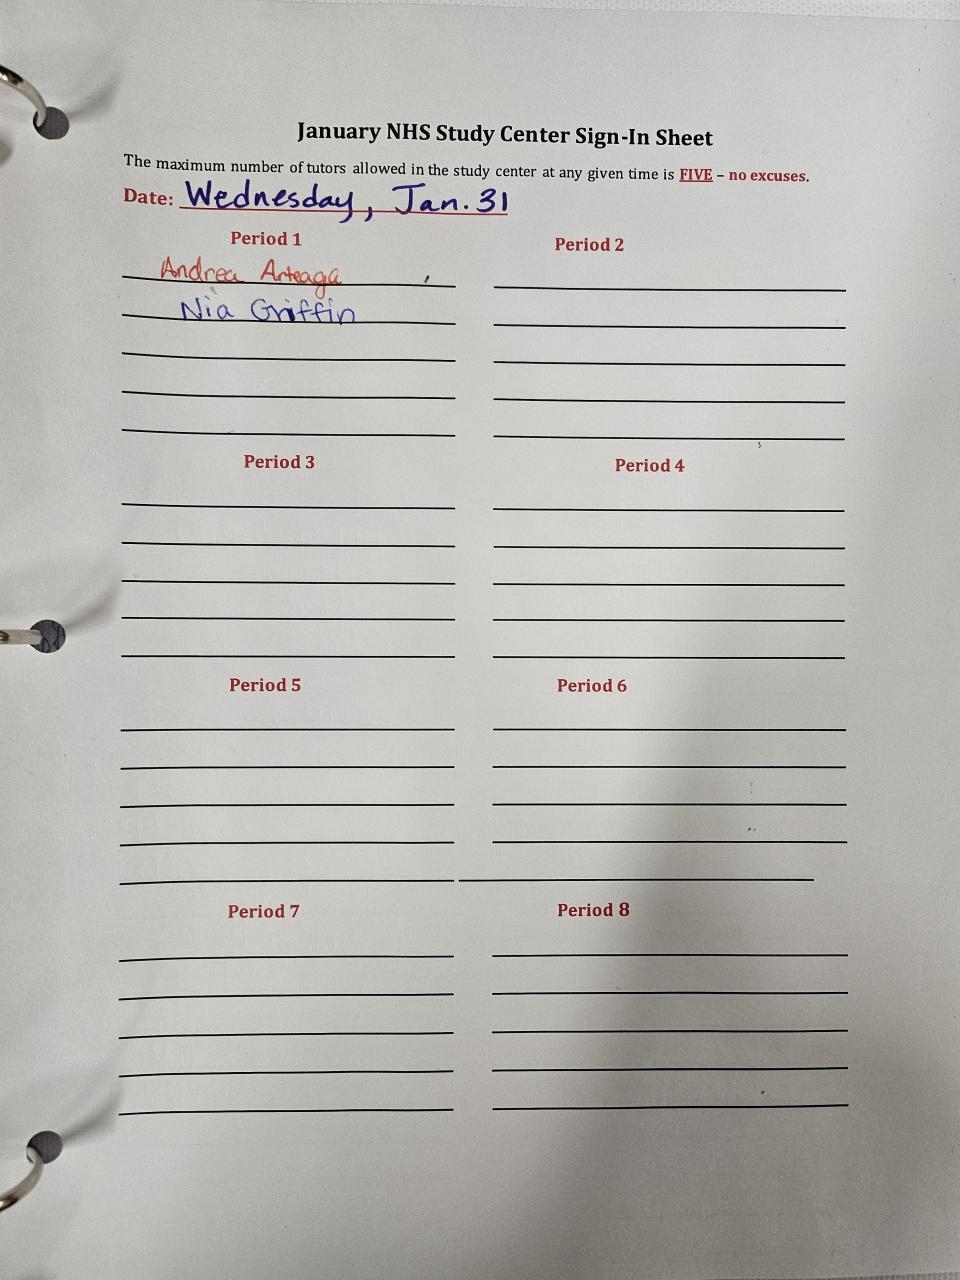 January NHS Study Center Sign-In Sheet
The maximum number of tutors allowed in the study center at any given time is FIVE – no excuses.
Date: Wednesday, Jan. 31
Period 1 Period 2
Andrea Arteaga
Nia Griffin
Period 3 Period 4
Period 5 Period 6
Period 7 Period 8